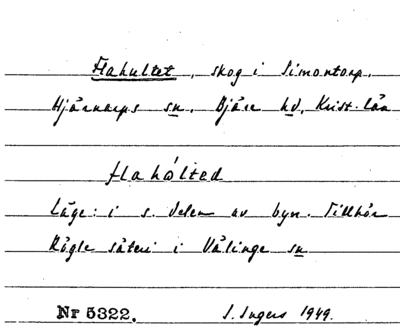 Flahultet, skog i Simontorp,
Hjärnarps sn, Bjäre hd, Krist. län
flahòlted
Läge: i s. delen av byn. Tillhör
Rögle säteri i Välinge sn
Nr 5322. I. Ingers 1949.